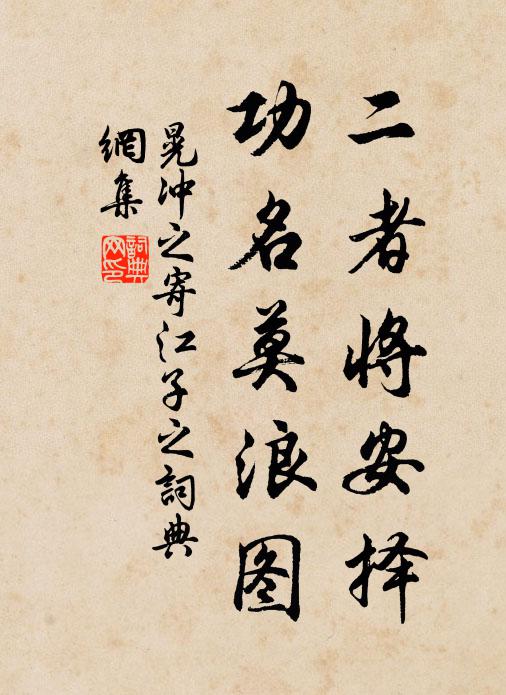 二者将安择
功名莫浪图
晁冲之寄江子之詞典
網集
詞典
网印